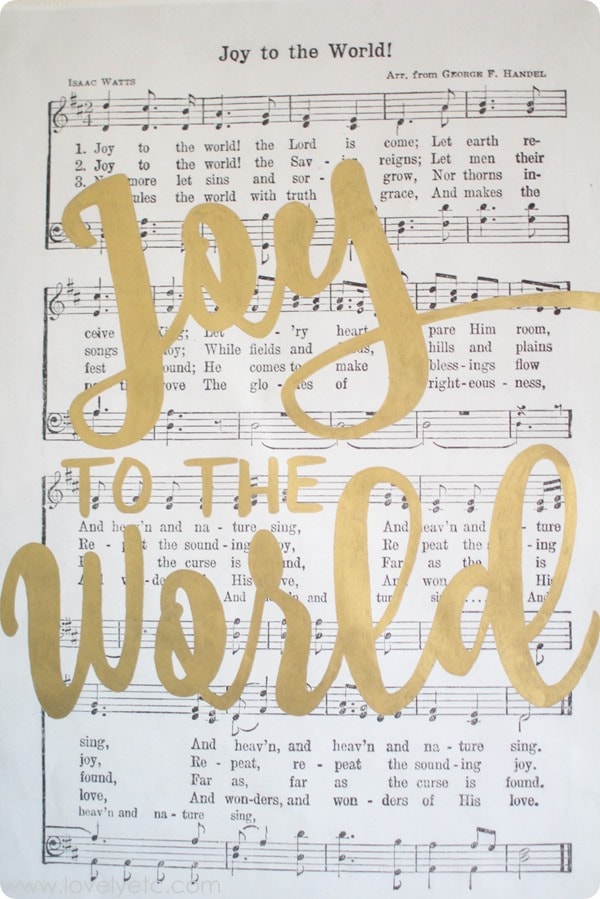 Joy to the World!
ISAAC WATTS Arr. from GEORGE F. HANDEL
1. Joy to the world! the Lord is come; Let earth re-
2. Joy to the world! the Sav - reigns; Let men their
3. more let sins and sor - grow, Nor thorns in-
the world with truth grace, And makes the
Joy
ceive heart pare Him room,
songs While fields and hills and plains
fest He comes to make bless - ings flow
The glo - of right-eous - ness,
TO THE
And and na - ture sing, And and na - ture
Re - the sound - ing Re - peat the - ing
the curse is Far as the is
His won His
And and And
World
sing, And heav'n, and heav'n and na - ture sing.
joy, Re - peat, re - peat the sound-ing joy.
found, Far as, far as the curse is found.
love, And won-ders, and won - ders of His love.
heav'n and na - ture sing,
www.lovelyetc.com